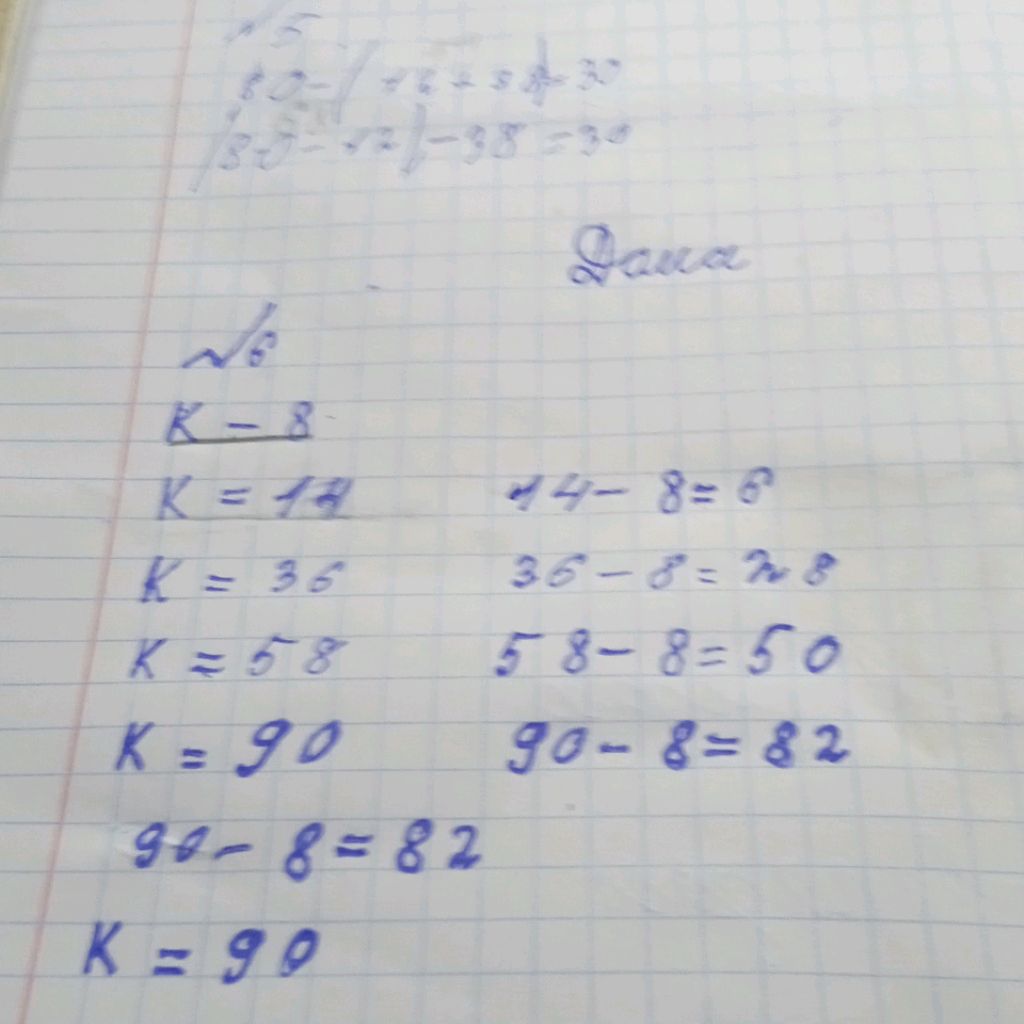 №5
80-(12+38)=30
(80-12)-38=30
Дома
№6
К - 8
К = 14 14 - 8 = 6
К = 36 36 - 8 = 28
К = 58 58 - 8 = 50
К = 90 90 - 8 = 82
90 - 8 = 82
К = 90